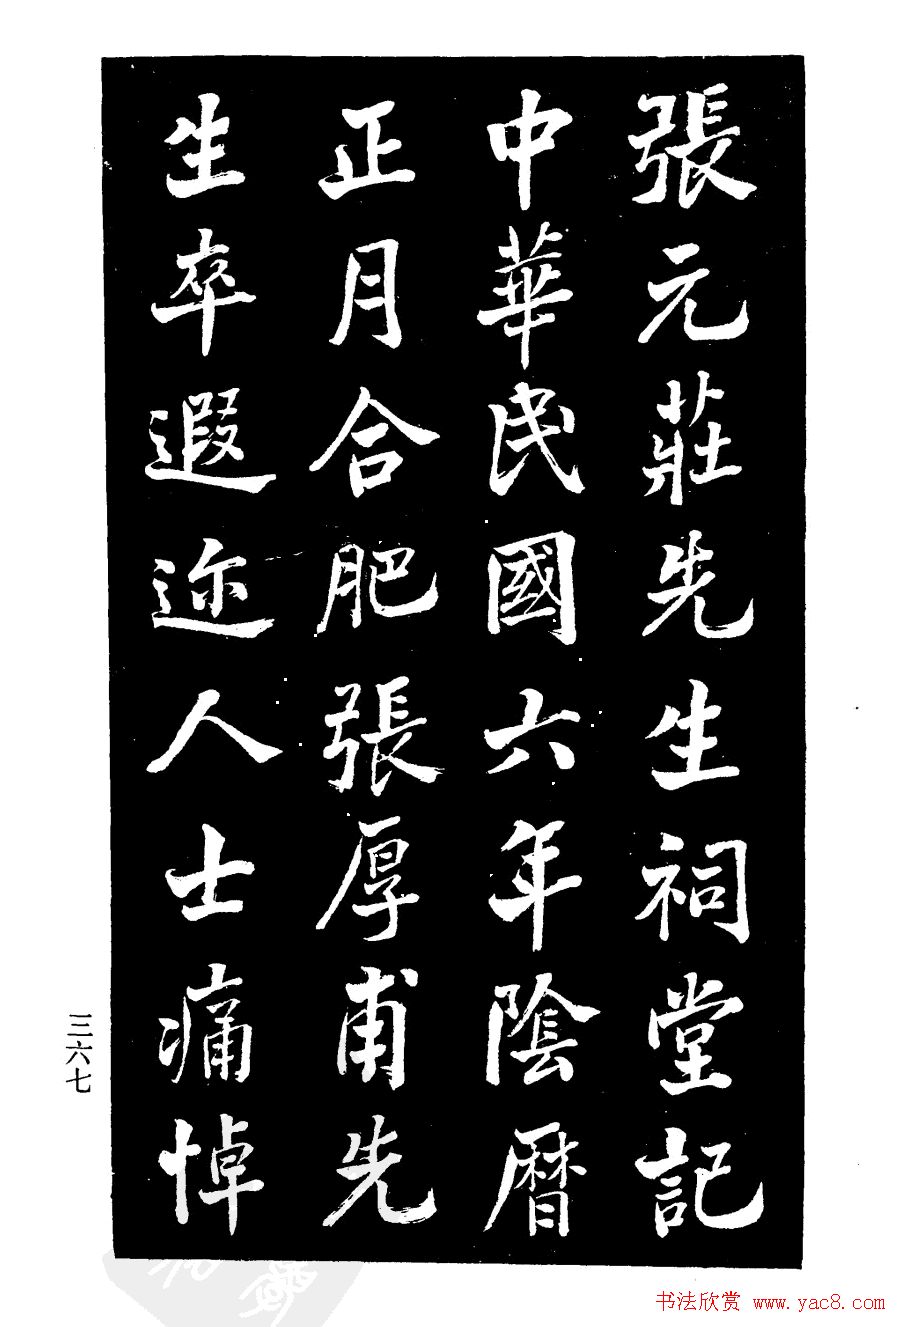 張元莊先生祠堂記
中華民國六年陰曆
正月合肥張厚甫先
生卒遐迩人士痛悼
三六七
书法欣赏 www.yac8.com